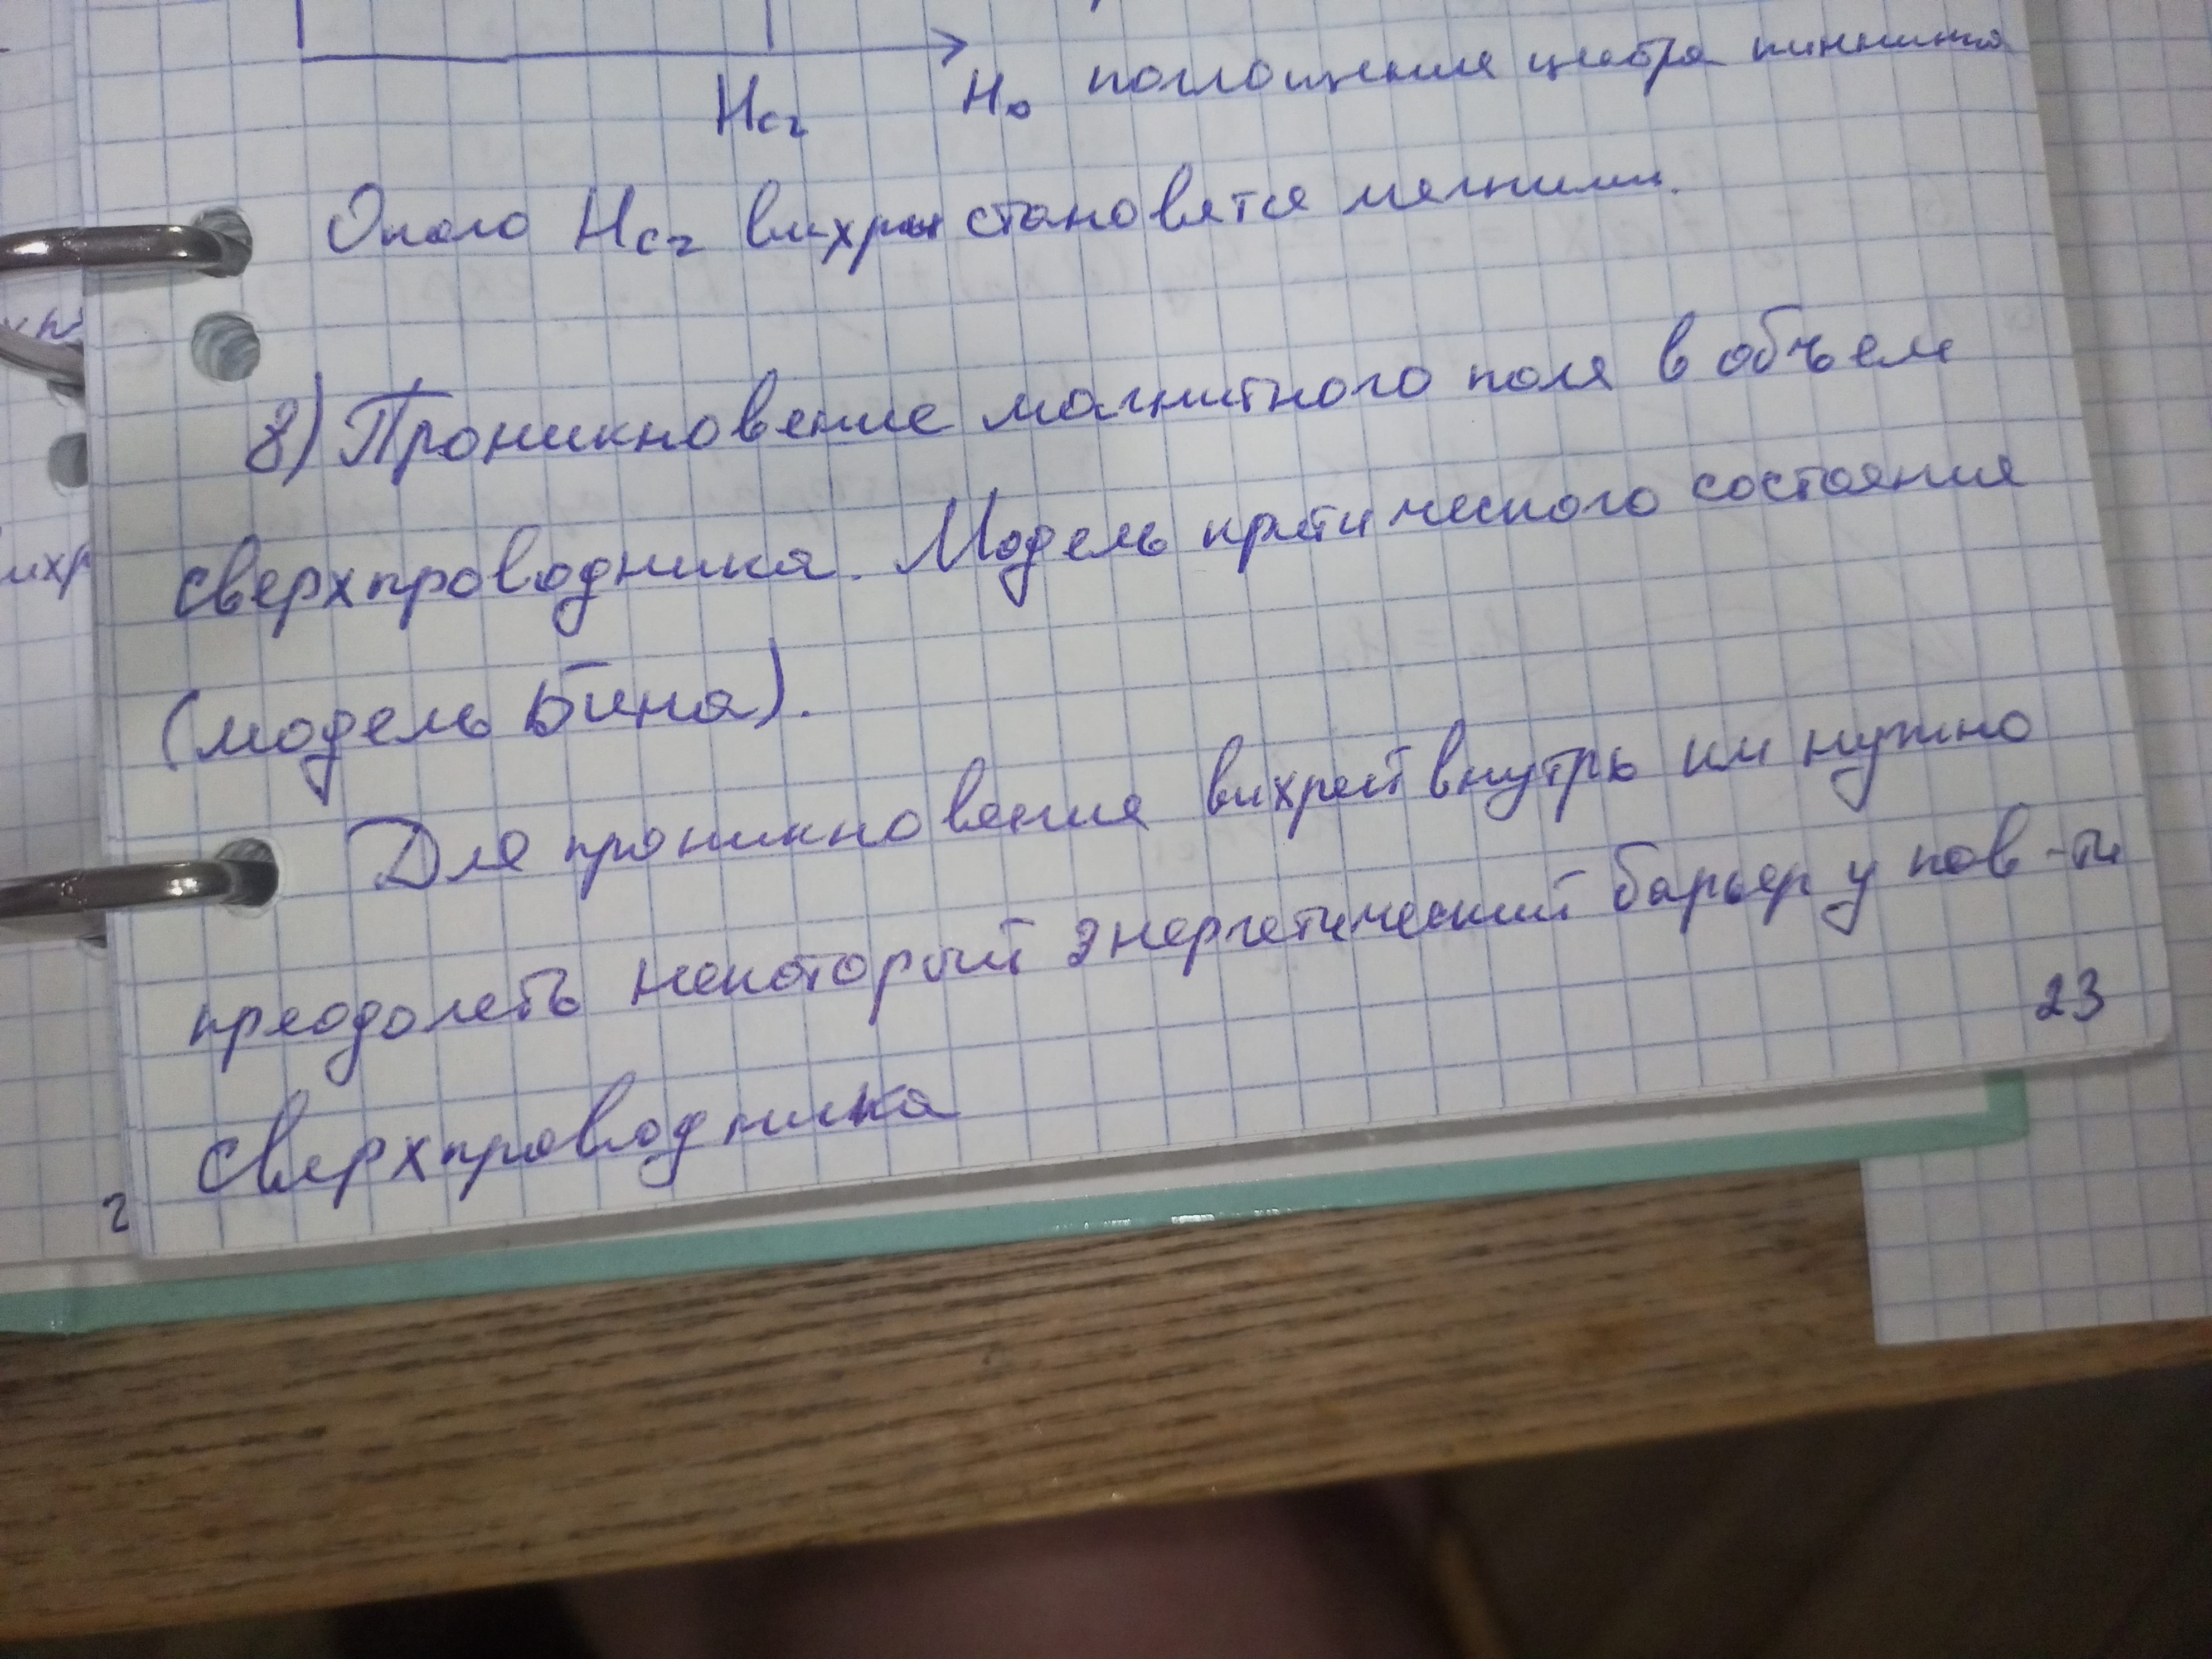 H₀ поглощения центра пиннинга
Hc₂
Около Hc₂ вихри становятся мягкими.
8) Проникновение магнитного поля в объем
сверхпроводника. Модель критического состояния
(модель Бина).
Для проникновения вихрей внутрь им нужно
преодолеть некоторый энергетический барьер у пов-ти
23
сверхпроводника
2